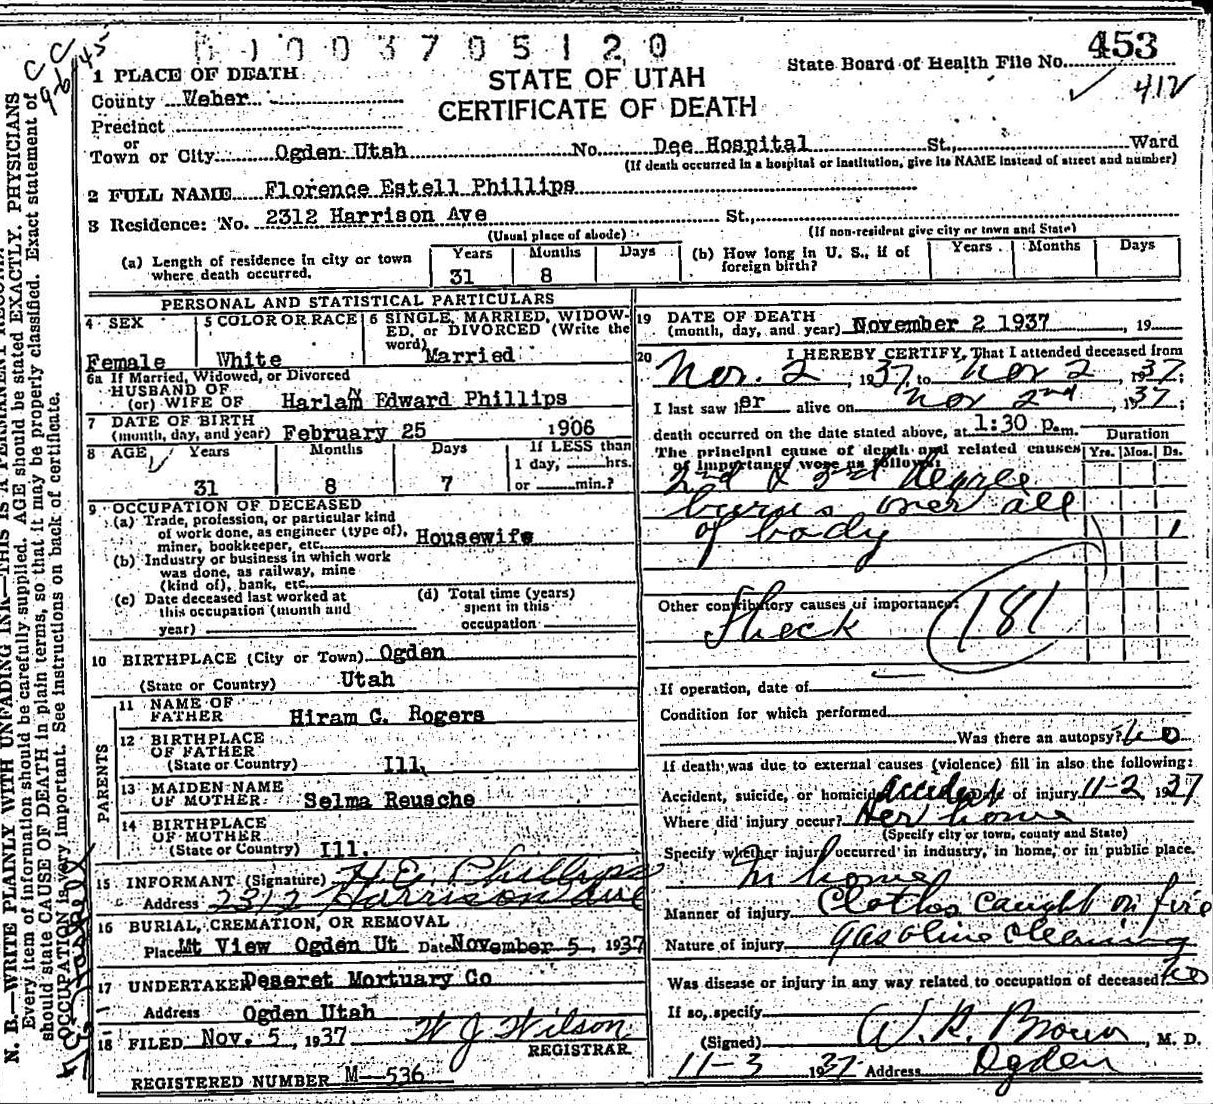 0 1 0 0 3 7 0 5 1 2 0
State Board of Health File No. 453
412
STATE OF UTAH
CERTIFICATE OF DEATH
1 PLACE OF DEATH
County Weber
Precinct
or
Town or City Ogden Utah No. Dee Hospital St., Ward
(If death occurred in a hospital or institution, give its NAME instead of street and number)
2 FULL NAME Florence Estell Phillips
3 Residence: No. 2312 Harrison Ave St.,
(Usual place of abode) (If non-resident give city or town and State)
(a) Length of residence in city or town where death occurred. Years 31 Months 8 Days
(b) How long in U. S., if of foreign birth? Years Months Days
PERSONAL AND STATISTICAL PARTICULARS
4 SEX Female
5 COLOR OR RACE White
6 SINGLE, MARRIED, WIDOWED, or DIVORCED (Write the word) Married
6a If Married, Widowed, or Divorced
HUSBAND OF
(or) WIFE OF Harlan Edward Phillips
7 DATE OF BIRTH
(month, day, and year) February 25 1906
8 AGE Years 31 Months 8 Days 7 If LESS than 1 day, hrs. or min.?
9 OCCUPATION OF DECEASED
(a) Trade, profession, or particular kind of work done, as engineer (type of), miner, bookkeeper, etc. Housewife
(b) Industry or business in which work was done, as railway, mine (kind of), bank, etc.
(c) Date deceased last worked at this occupation (month and year)
(d) Total time (years) spent in this occupation
10 BIRTHPLACE (City or Town) Ogden
(State or Country) Utah
PARENTS
11 NAME OF FATHER Hiram C. Rogers
12 BIRTHPLACE OF FATHER (State or Country) Ill.
13 MAIDEN NAME OF MOTHER Selma Reusche
14 BIRTHPLACE OF MOTHER (State or Country) Ill.
15 INFORMANT (Signature) H. E. Phillips
Address 2312 Harrison Ave
16 BURIAL, CREMATION, OR REMOVAL
Place Mt View Ogden Ut Date November 5, 1937
17 UNDERTAKER Deseret Mortuary Co
Address Ogden Utah
18 FILED Nov. 5, 1937 W J Wilson
REGISTRAR
REGISTERED NUMBER M-536
19 DATE OF DEATH
(month, day, and year) November 2 1937, 19
20 I HEREBY CERTIFY, That I attended deceased from
Nov. 2, 1937, to Nov 2, 1937;
I last saw her alive on Nov 2nd, 1937;
death occurred on the date stated above, at 1:30 p.m.
The principal cause of death and related causes of importance were as follows: Duration Yrs. Mos. Ds.
2nd & 3rd degree
burns over all
of body 1
Other contributory causes of importance:
Shock
181
If operation, date of
Condition for which performed
Was there an autopsy? No
If death was due to external causes (violence) fill in also the following:
Accident, suicide, or homicide Accident Date of injury 11-2 1937
Where did injury occur? Her home
(Specify city or town, county and State)
Specify whether injury occurred in industry, in home, or in public place.
In home
Manner of injury Clothes caught on fire
Nature of injury gasoline cleaning
Was disease or injury in any way related to occupation of deceased? No
If so, specify
(Signed) W. R. Brown, M. D.
11-3 1937 Address Ogden
N. B.—WRITE PLAINLY WITH UNFADING INK—THIS IS A PERMANENT RECORD
Every item of information should be carefully supplied. AGE should be stated EXACTLY. PHYSICIANS
should state CAUSE OF DEATH in plain terms, so that it may be properly classified. Exact statement of
OCCUPATION is very important. See instructions on back of certificate.
CC
9-6-45